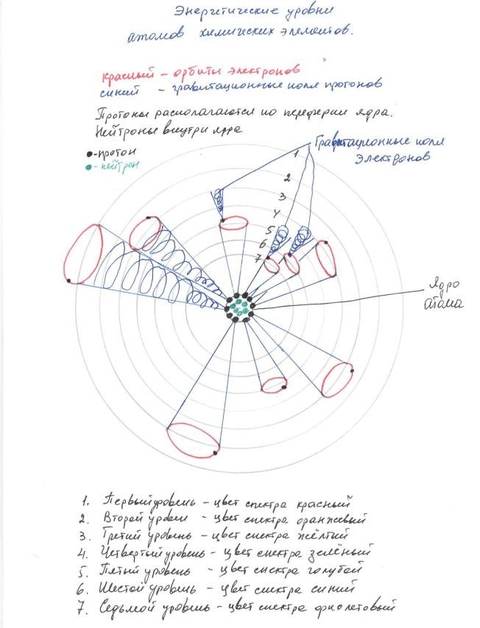 Энергетические уровни
атомов химических элементов.
красный – орбиты электронов
синий – гравитационные поля протонов
Протоны располагаются по периферии ядра.
Нейтроны внутри ядра
- протон
- нейтрон
Гравитационные поля
электронов
1
2
3
4
5
6
7
Ядро
атома
1. Первый уровень – цвет спектра красный
2. Второй уровень – цвет спектра оранжевый
3. Третий уровень – цвет спектра жёлтый
4. Четвертый уровень – цвет спектра зелёный
5. Пятый уровень – цвет спектра голубой
6. Шестой уровень – цвет спектра синий
7. Седьмой уровень – цвет спектра фиолетовый